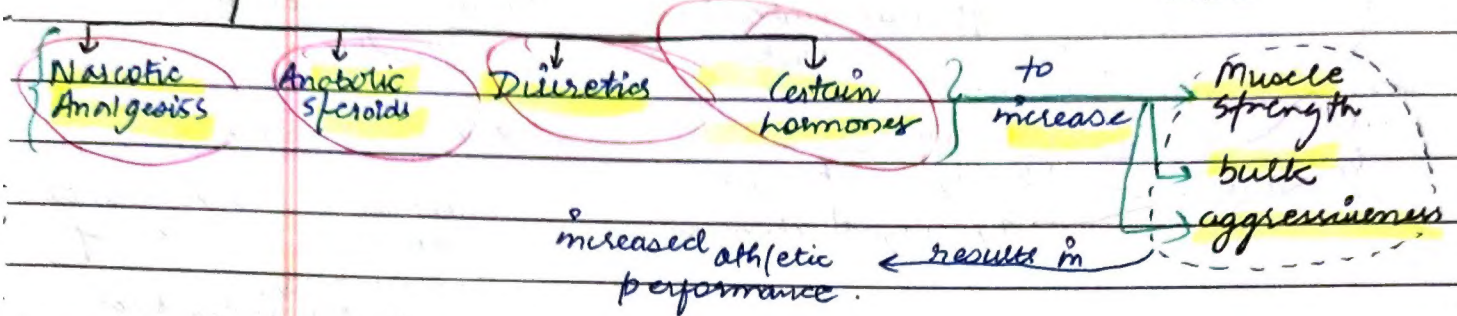 Narcotic Analgesiss
Anabolic steroids
Diuretics
Certain hormones
to increase
Muscle strength
bulk
aggressiveness
results in
increased athletic performance.